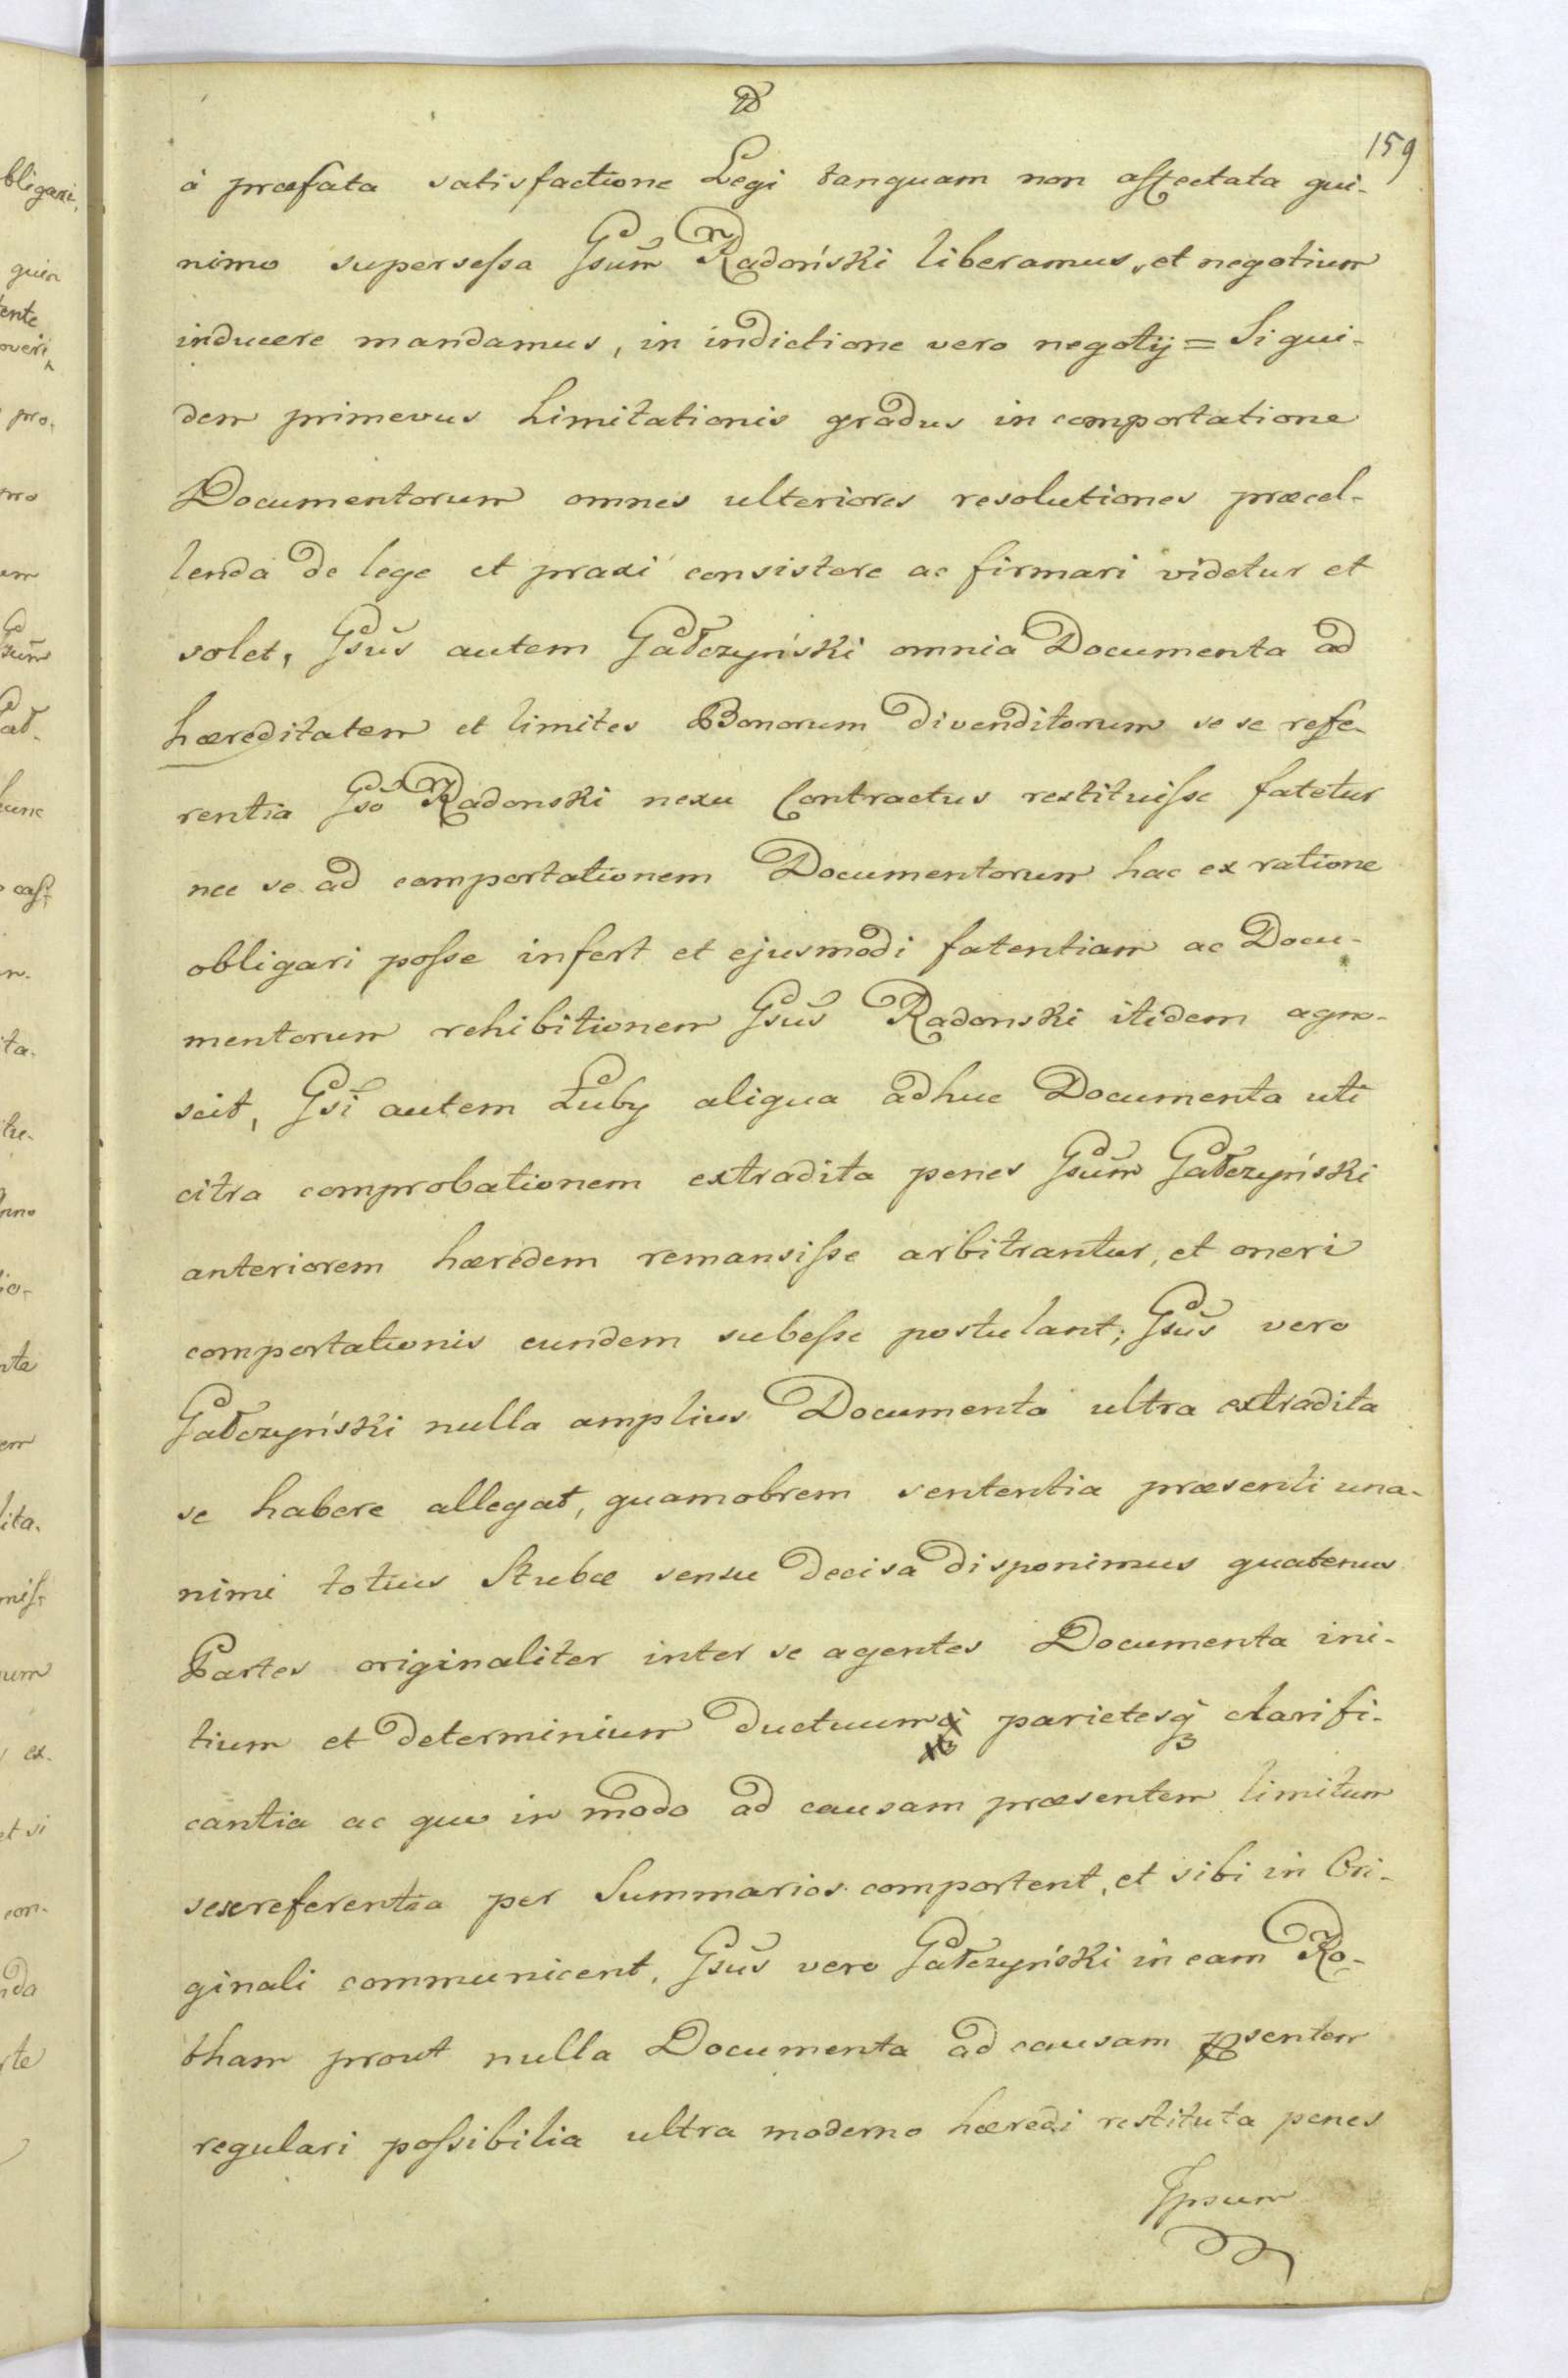 159
à præfata satisfactione Legi tanquam non affectata qui-
nimo superseſsa Gsum̃ Radoński liberamus, et negotium
inducere mandamus, in indictione vero negotij = Siqui-
dem primevus Limitationis gradus in comportatione
Documentorum omnes ulteriores resolutiones præcel-
lenda de lege et praxi consistere ac firmari videtur et
solet, Gsus̃ autem Gałczyński omnia Documenta ad
hæreditatem et limites Bonorum divenditorum se se refe-
rentia Gso Radonski nexu Contractus restituiſse fatetur
nec se ad comportationem Documentorum hac ex ratione
obligari poſse infert et ejusmodi fatentiam ac Docu-
mentorum rehibitionem Gsus̃ Radonski itidem agno-
scit, Gsi autem Łuby aliqua adhuc Documenta uti
citra comprobationem extradita penes Gsum̃ Gałczyński
anteriorem hæredem remansiſse arbitrantur, et oneri
comportationis eundem subeſse postulant; Gsus̃ vero
Gałczyński nulla amplius Documenta ultra extradita
se habere allegat, quamobrem sententia præsenti una-
nimi totius Stubæ sensu decisa disponimus quatenus
Partes originaliter inter se agentes Documenta ini-
tium et determinium ductuum parietesq̃ clarifi-
cantia ac quo in modo ad causam præsentem limitum
sesereferentia per Summarios comportent, et sibi in Ori-
ginali communicent, Gsus̃ vero Gałczyński in eam Ro-
tham prout nulla Documenta ad causam pſsentem
regulari poſsibilia ultra moderno hæredi restituta penes
Ipsum